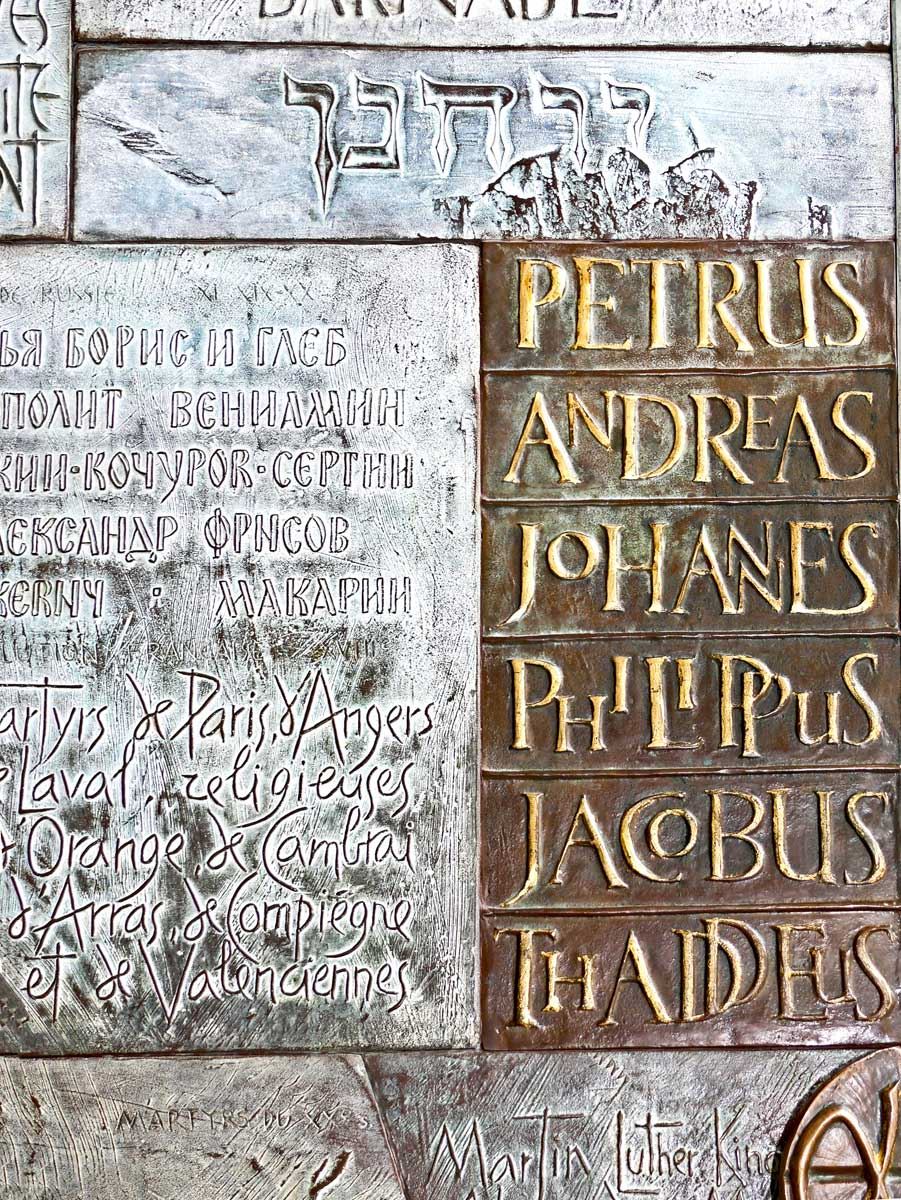 BARNABÉ
יוחנן
DE RUSSIE XI XIX-XX
ЬЯ БОРИС И ГЛЕБ
ПОЛИТ ВЕНИАМИН
КИИ·КОЧУРОВ·СЕРГИИ
ЛЕКСАНДР ФРИСОВ
МАКАРИИ
LUTION FRANÇAISE XVIII
artyrs de Paris, d'Angers
e Laval, religieuses
t Orange, de Cambrai
d'Arras, de Compiégne
et de Valenciennes
PETRUS
ANDREAS
JOHANES
PHILIPPUS
JACOBUS
THADDEUS
MARTYRS DU XXe S
Martin Luther King